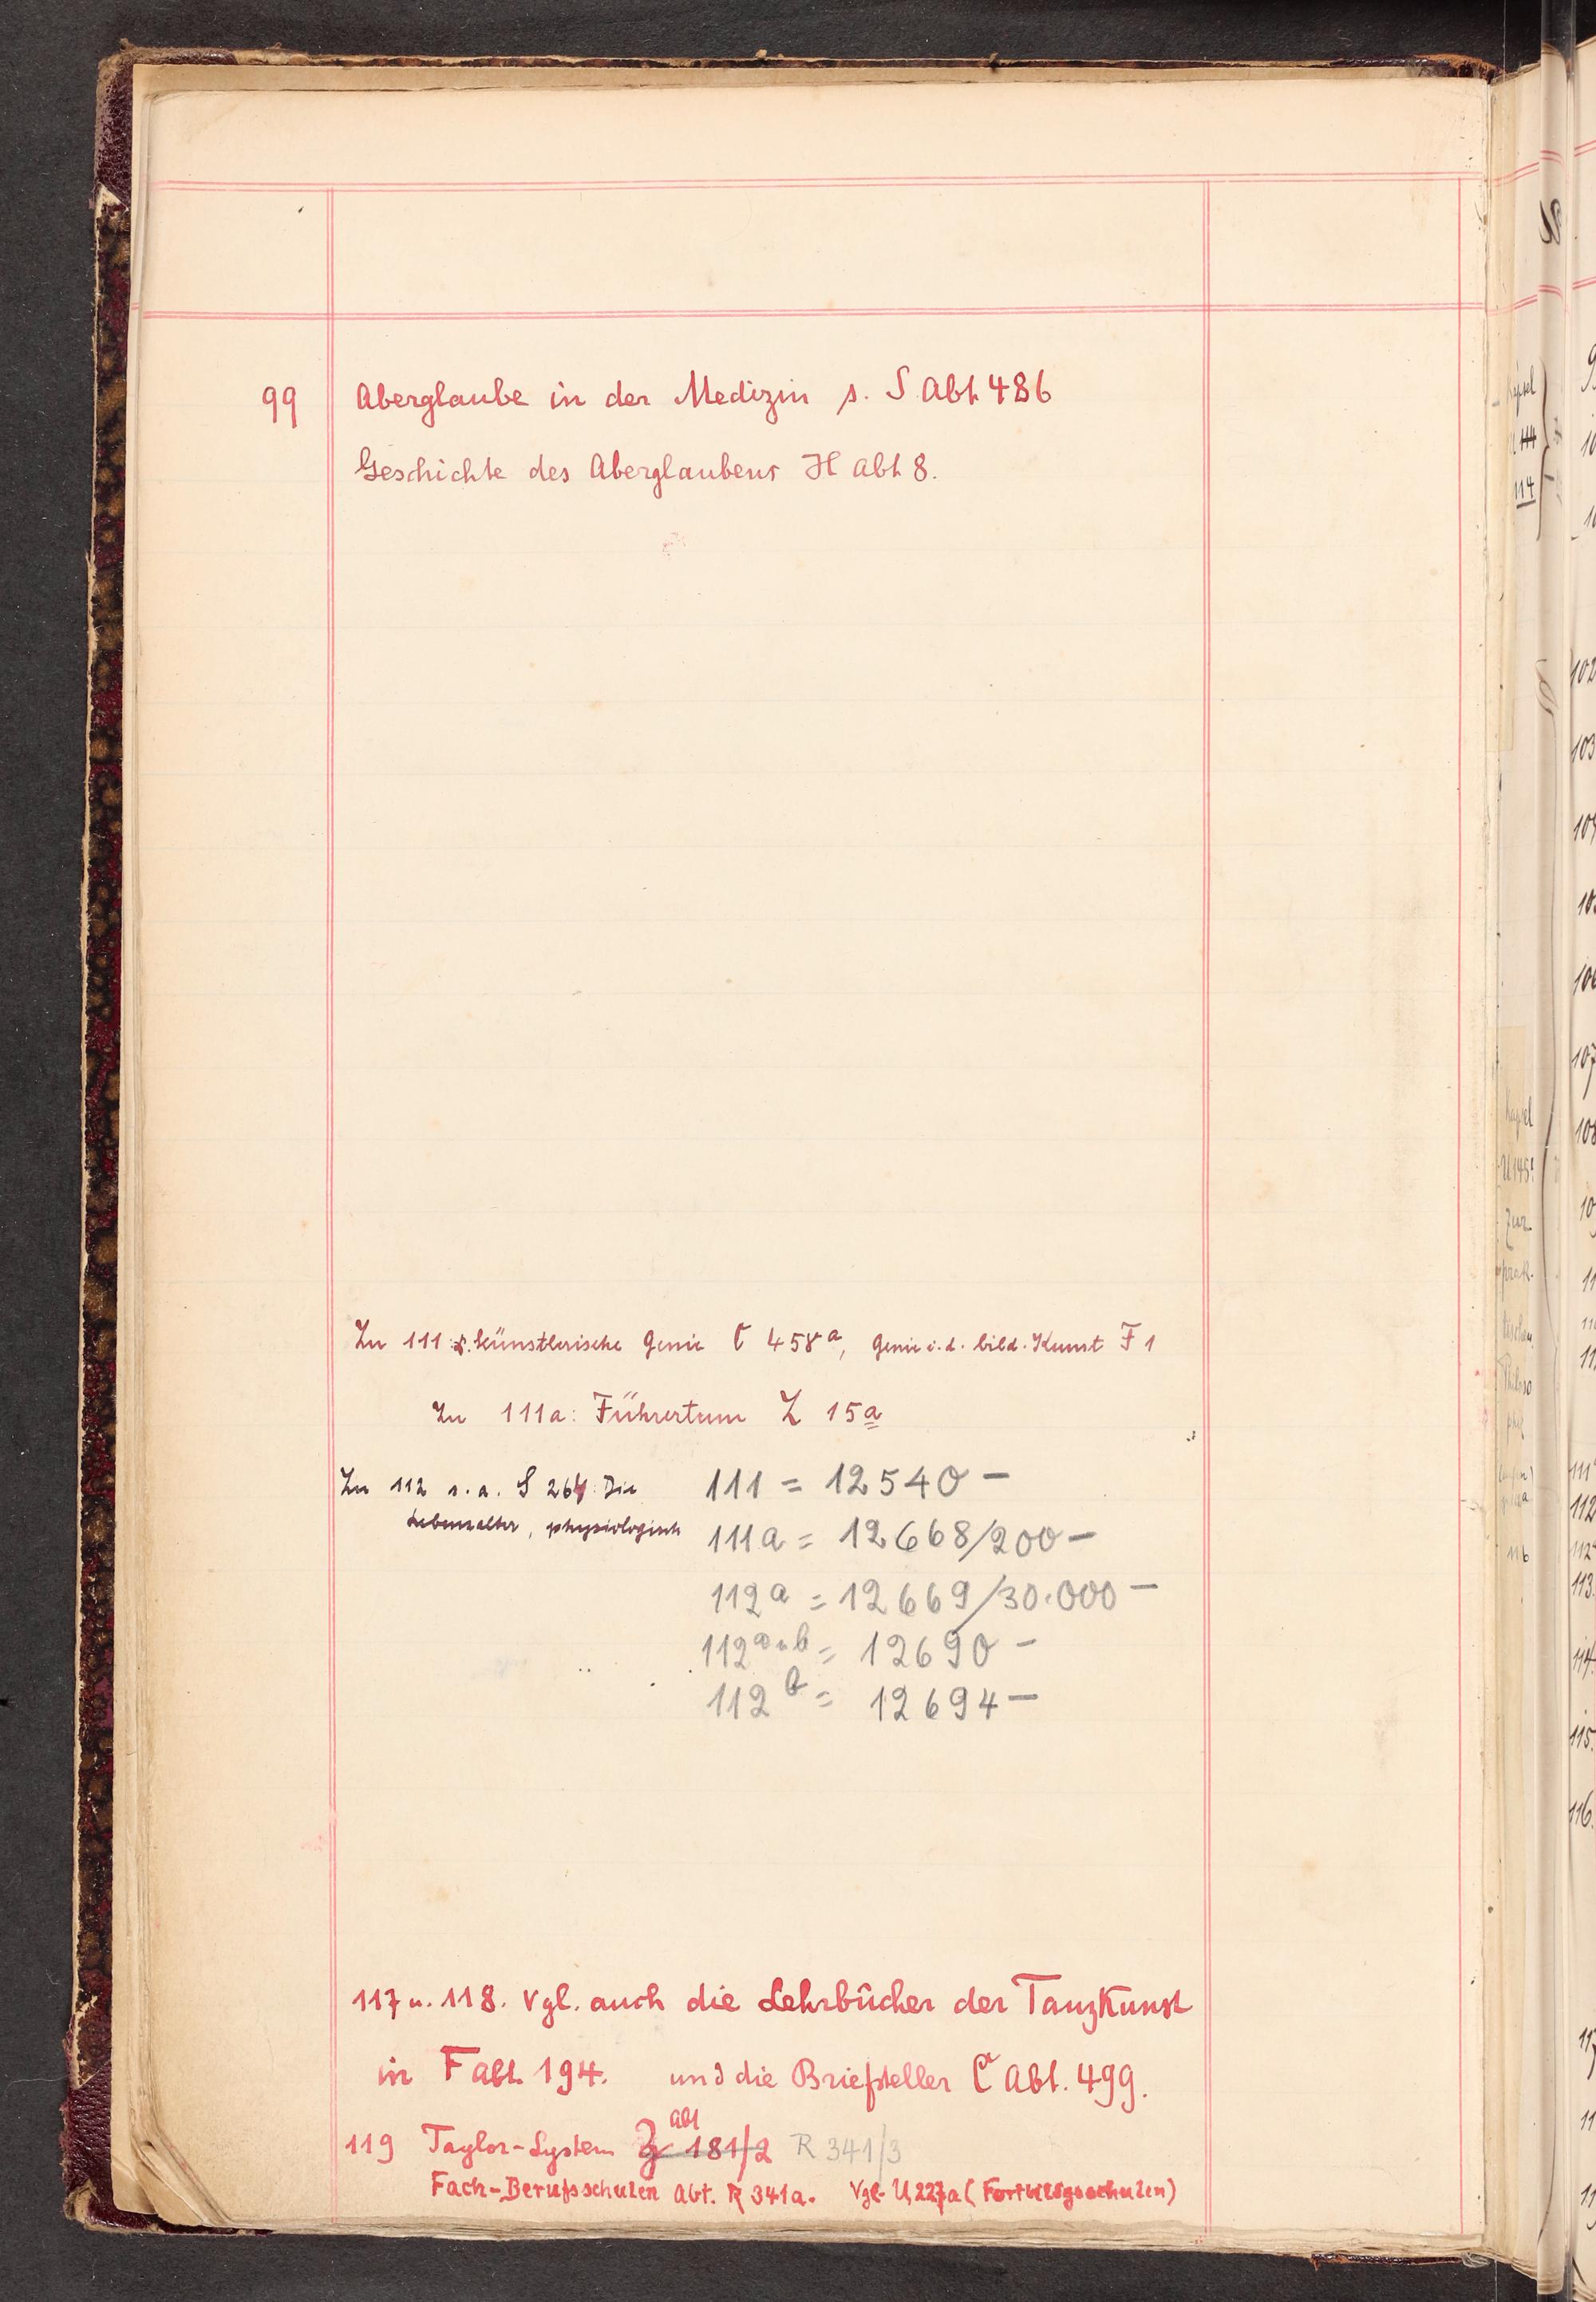 99 Aberglaube in der Medizin s. S Abt 486
Geschichte des Aberglaubens H Abt 8.
Zu 111: s. künstlerische Genie C 458a, Genie i. d. bild. Kunst F 1
Zu 111a: Führertum Z 15a
Zu 112 s. a. S 264 Die
Lebensalter, physiologisch
111 = 12540 –
111a = 12668/200 –
112a = 12669/30.000 –
112a u b = 12690 –
112b = 12694 –
117 u. 118. Vgl. auch die Lehrbücher der Tanzkunst
in F Abt. 194. und die Briefsteller C Abt. 499.
119 Taylor-System Z Abt 181/2 R 341/3
Fach-Berufsschulen Abt. R 341a. Vgl. U 227a (Fortbildgsschulen)